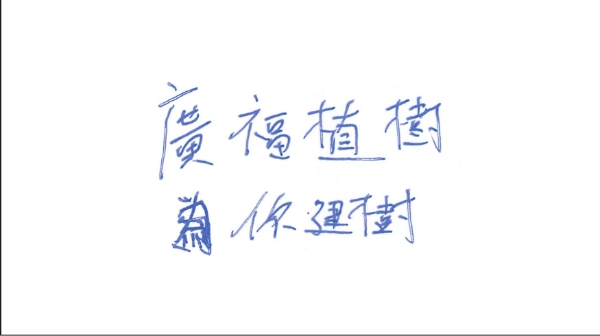 廣福植樹
為你建樹